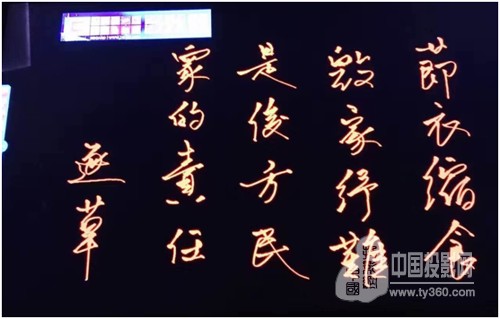 節衣縮食
毀家紓難
是後方民
眾的責任
草
中国投影网
www.ty360.com